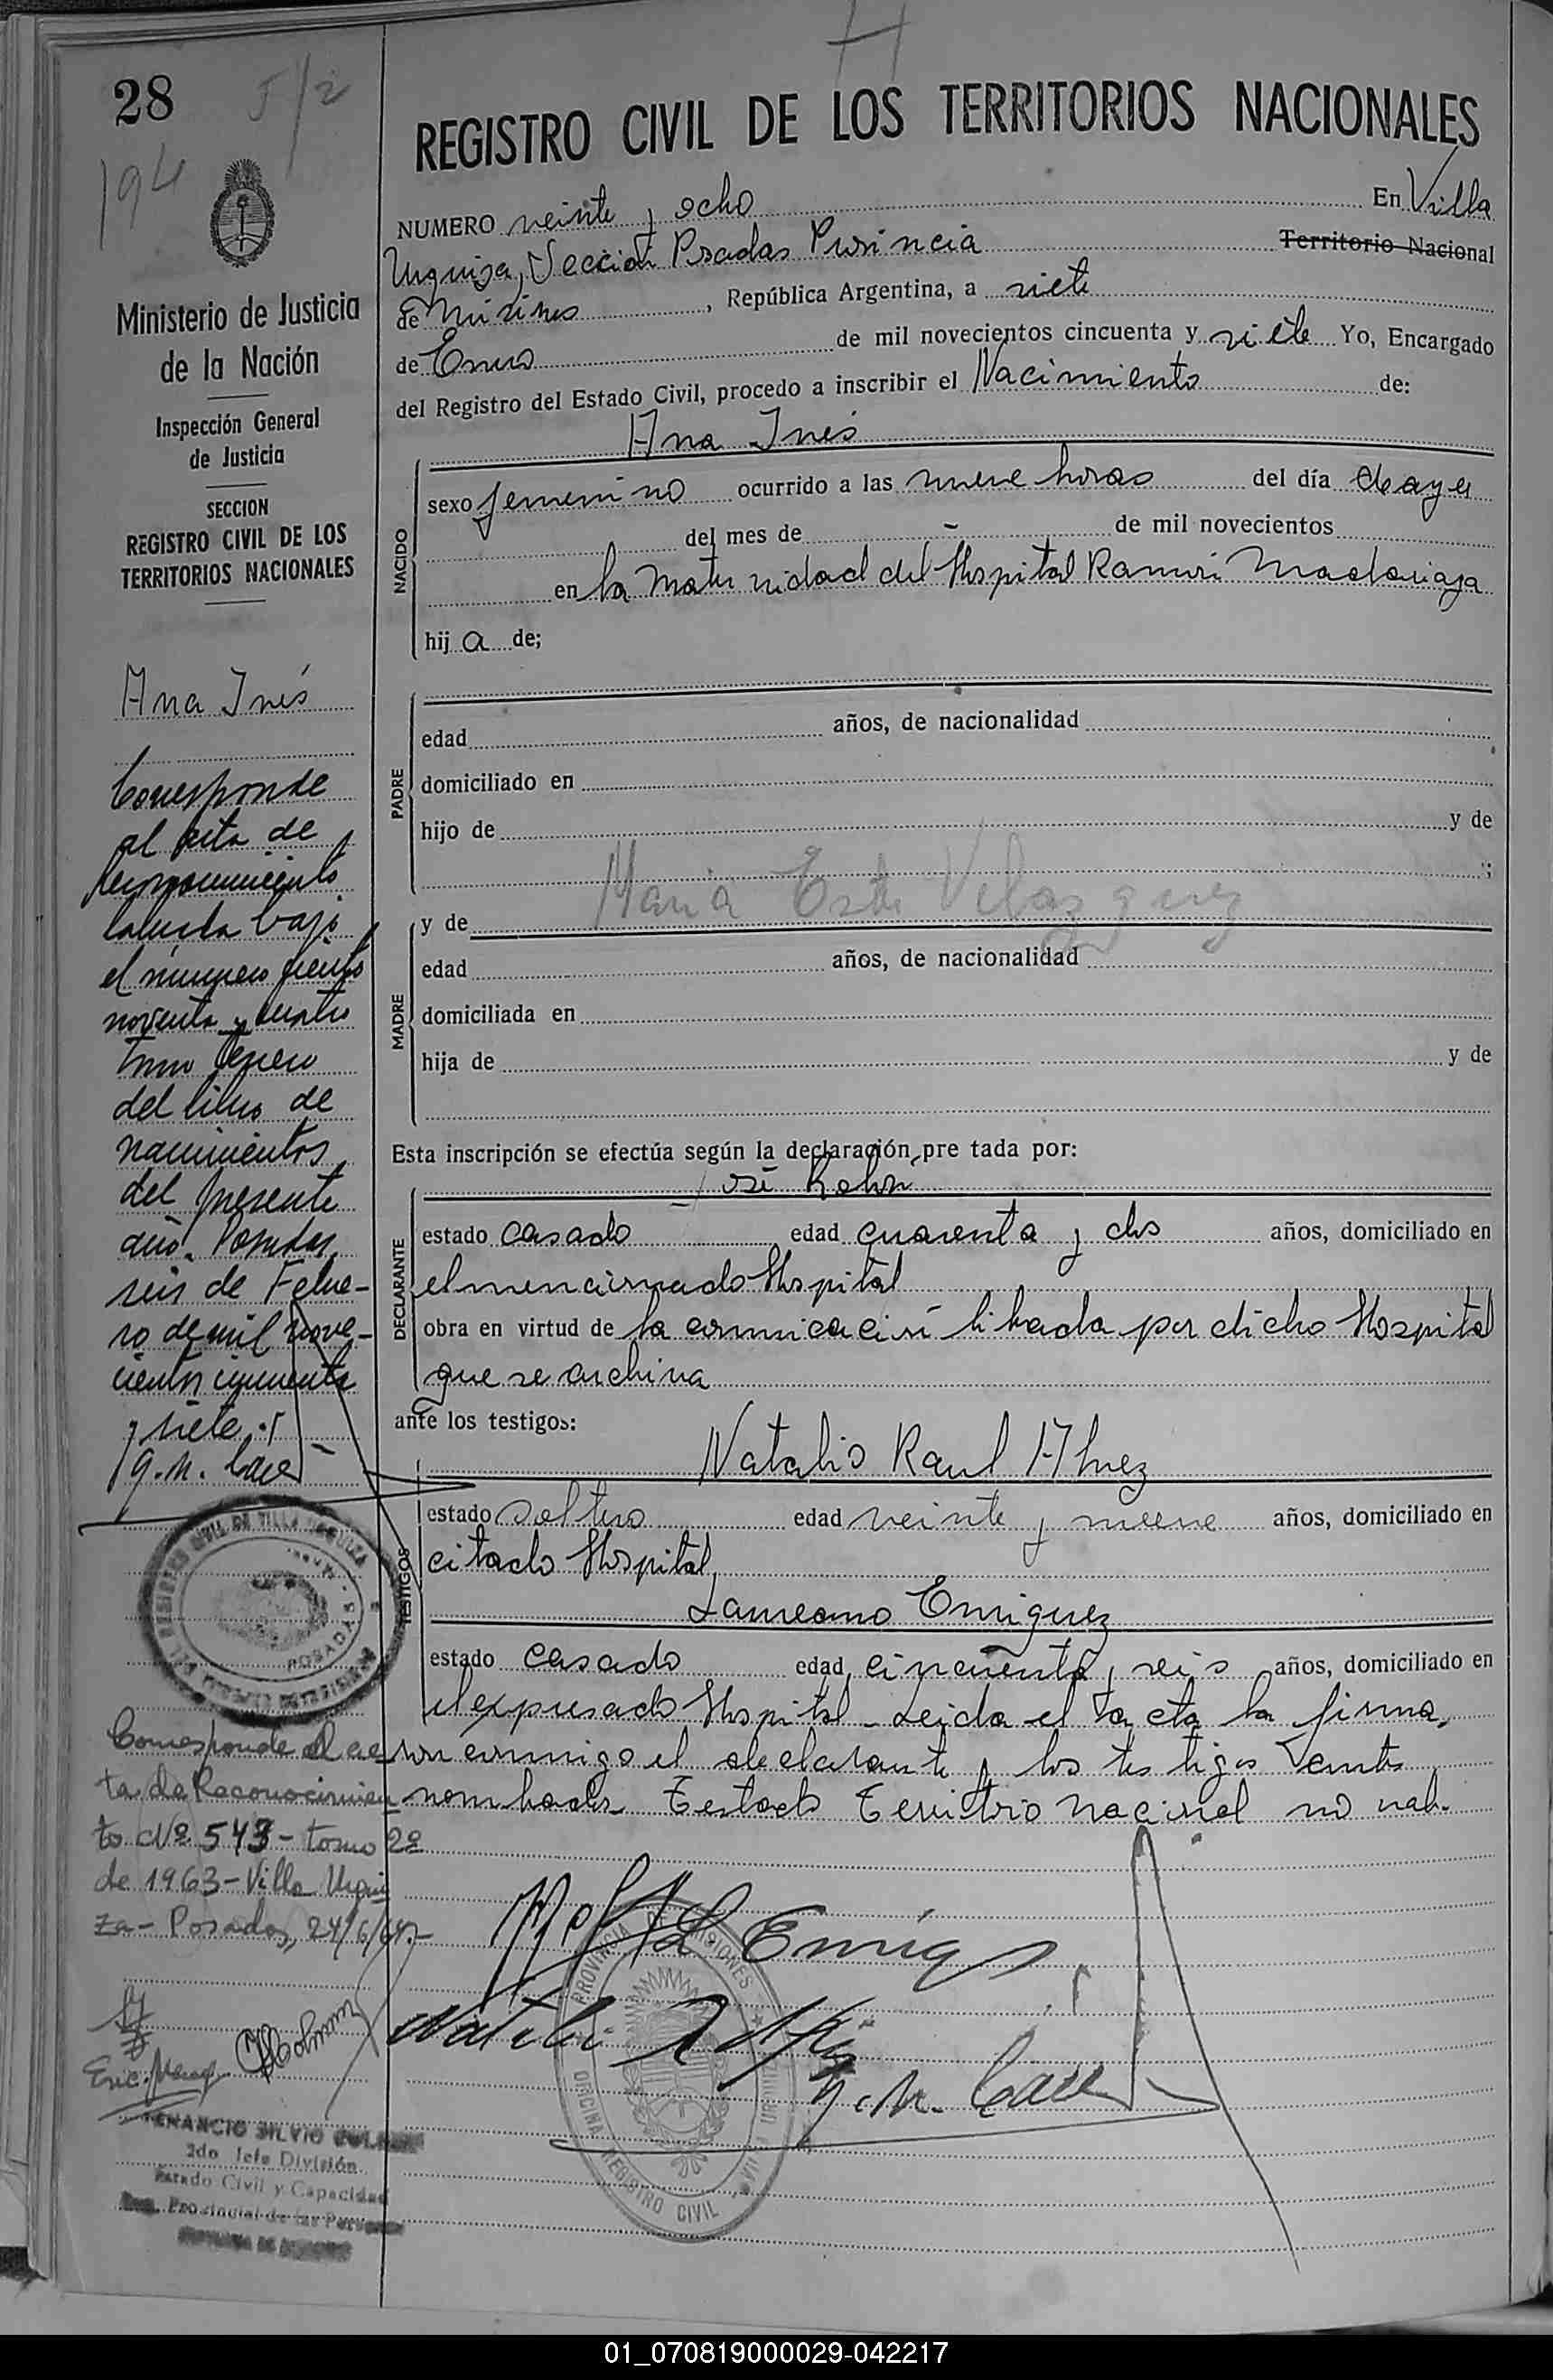 28
5/2
194
REGISTRO CIVIL DE LOS TERRITORIOS NACIONALES
NUMERO veinte y ocho En Villa
Urquiza, Sección Posadas Provincia Territorio Nacional
de Misiones, República Argentina, a siete
de Enero de mil novecientos cincuenta y siete Yo, Encargado
del Registro del Estado Civil, procedo a inscribir el Nacimiento de:
Ana Inés
NACIDO
sexo femenino ocurrido a las nueve horas del día de ayer
del mes de - de mil novecientos
en la Maternidad del Hospital Ramón Madariaga
hij a de;
PADRE
edad años, de nacionalidad
domiciliado en
hijo de y de
;
Maria Ester Velazquez
MADRE
y de
edad años, de nacionalidad
domiciliada en
hija de y de
Esta inscripción se efectúa según la declaración pre tada por:
José
DECLARANTE
estado casado edad cuarenta y dos años, domiciliado en
el mencionado Hospital
obra en virtud de la comunicación librada por dicho Hospital
que se archiva
ante los testigos:
Natalio Raul
TESTIGOS
estado soltero edad veinte y nueve años, domiciliado en
citado Hospital,
Laureano Enriquez
estado casado edad cincuenta y seis años, domiciliado en
el expresado Hospital - Leida el acta la firma
ron conmigo el declarante y los testigos antes
nombrados - Testado Territorio nacional no vale.
L Enriq
G. N.
PROVINCIA DE MISIONES
OFICINA REGISTRO CIVIL
Ministerio de Justicia
de la Nación
Inspección General
de Justicia
SECCION
REGISTRO CIVIL DE LOS
TERRITORIOS NACIONALES
Ana Inés
Corresponde
al acta de
Reconocimiento
labrada bajo
el número ciento
noventa y cuatro
tomo
del libro de
nacimientos
del presente
año. Posadas,
seis de Febre-
ro de mil nove-
cientos cincuenta
y siete.
G. N.
REGISTRO CIVIL DE VILLA URQUIZA
POSADAS
Corresponde al ac
ta de Reconocimien
to Nº 543 - tomo 2º
de 1963 - Villa Urqui
za - Posadas, 24/6/
VENANCIO SILVIO
2do Jefe División
Estado Civil y Capacidad
Reg. Provincial de las Personas
01_070819000029-042217